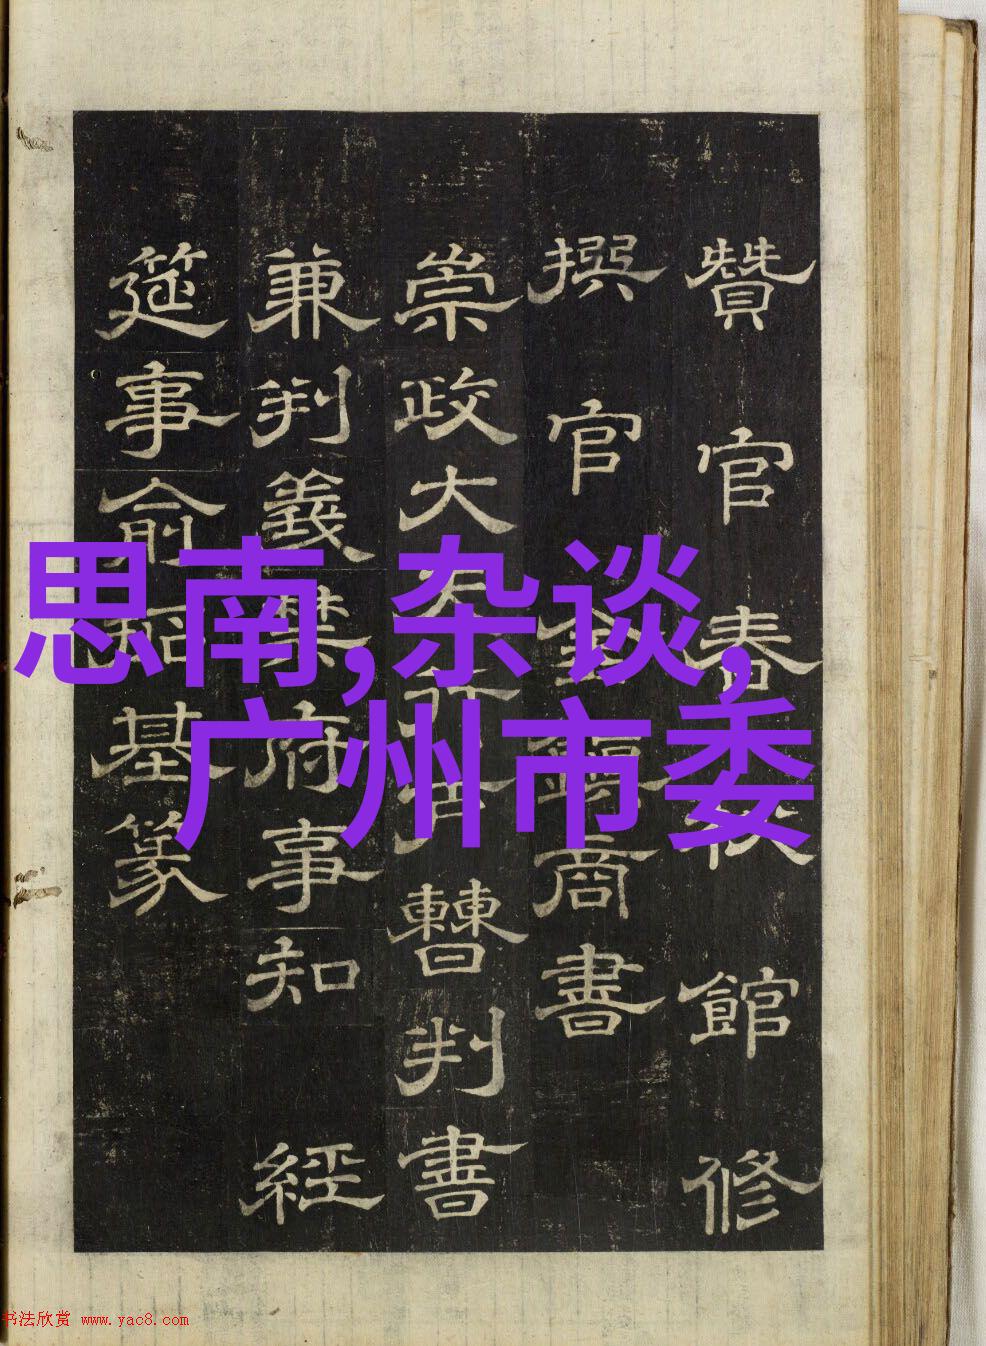 思南,杂谈,
广州市委
贊官 春秋館修
撰官
商書
崇政大
曹判書
兼判義禁府事知 經
筵事俞
基篆
书法欣赏 www.yac8.com